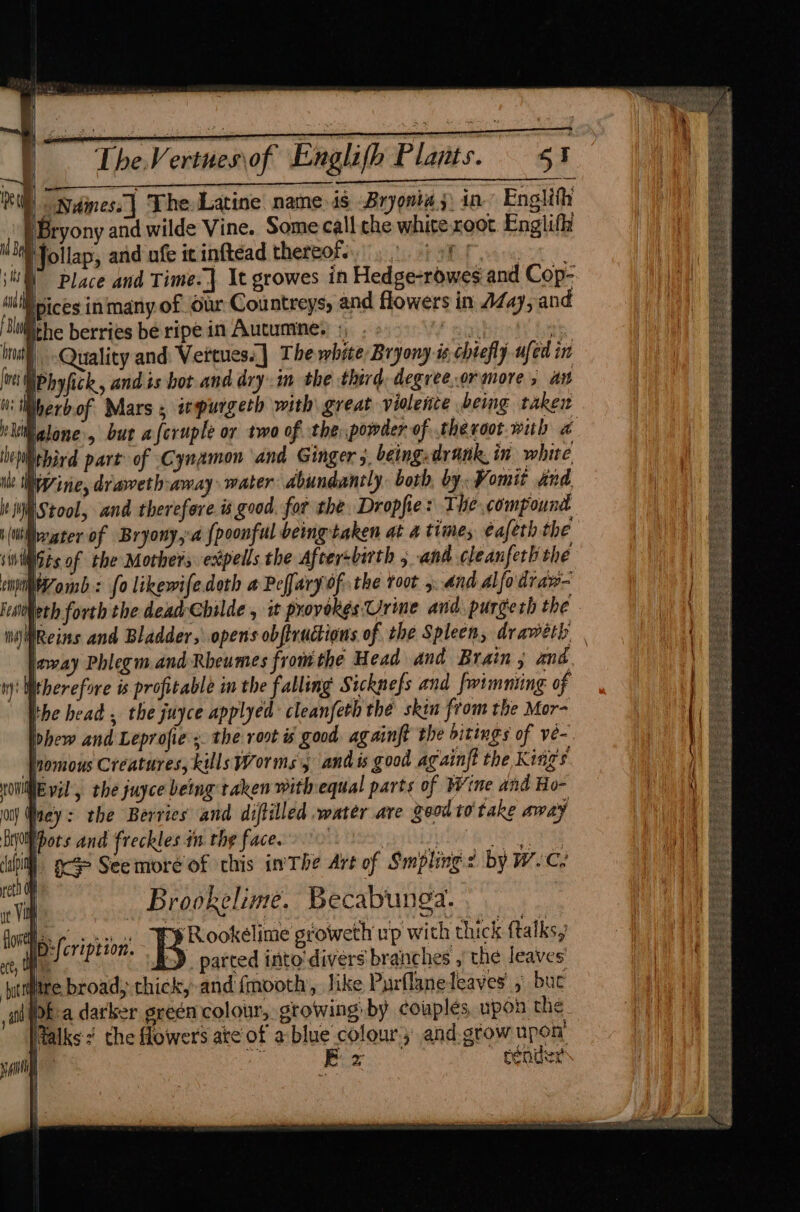 The Vertues of Engliſh Plants. 51
Names.] The Latine name is Bryonia; in Engliſh
Bryony and wilde Vine. Some call the white root Engliſh
Jollap, and uſe it inſtead thereof.
Place and Time.] It growes in Hedge-rowes and Cop-
pices in many of our Countreys, and flowers in May, and
the berries be ripe in Autumne.
Quality and Vertues.] The white Bryony is chiefly uſed in
Phyſick, and is hot and dry in the third degree or more, an
herb of Mars; it purgeth with great violence being taken
alone, but a ſcruple or two of the powder of the root with a
third part of Cynamon and Ginger; being drunk in white
Wine, draweth away water abundantly both by Vomit and
Stool, and therefore is good for the Dropſie: The compound
water of Bryony, a ſpoonful being taken at a time, eaſeth the
Fits of the Mother, expells the After-birth; and cleanſeth the
Womb: ſo likewiſe doth a Peſſary of the root, and alſo draw-
eth forth the dead Childe, it provokes Urine and purgeth the
Reins and Bladder, opens obſtructions of the Spleen, draweth
away Phlegm and Rheumes from the Head and Brain; and
therefore is profitable in the falling Sickneſs and ſwimming of
the head, the juyce applyed cleanſeth the skin from the Mor-
phew and Leproſie; the root is good againſt the bitings of ve-
nomous Creatures, kills Worms, and is good againſt the Kings
Evil, the juyce being taken with equal parts of Wine and Ho-
ney: the Berries and diſtilled water are good to take away
ſpots and freckles in the face.
See more of this in The Art of Simpling: by W. C.
Brookelime. Becabunga.
Deſcription. BRookelime groweth up with thick ſtalks,
parted into divers branches, the leaves
are broad, thick, and ſmooth, like Purſlane leaves, but
of a darker green colour, growing by couples upon the
ſtalks: the flowers are of a blue colour, and grow upon
E 2 tender